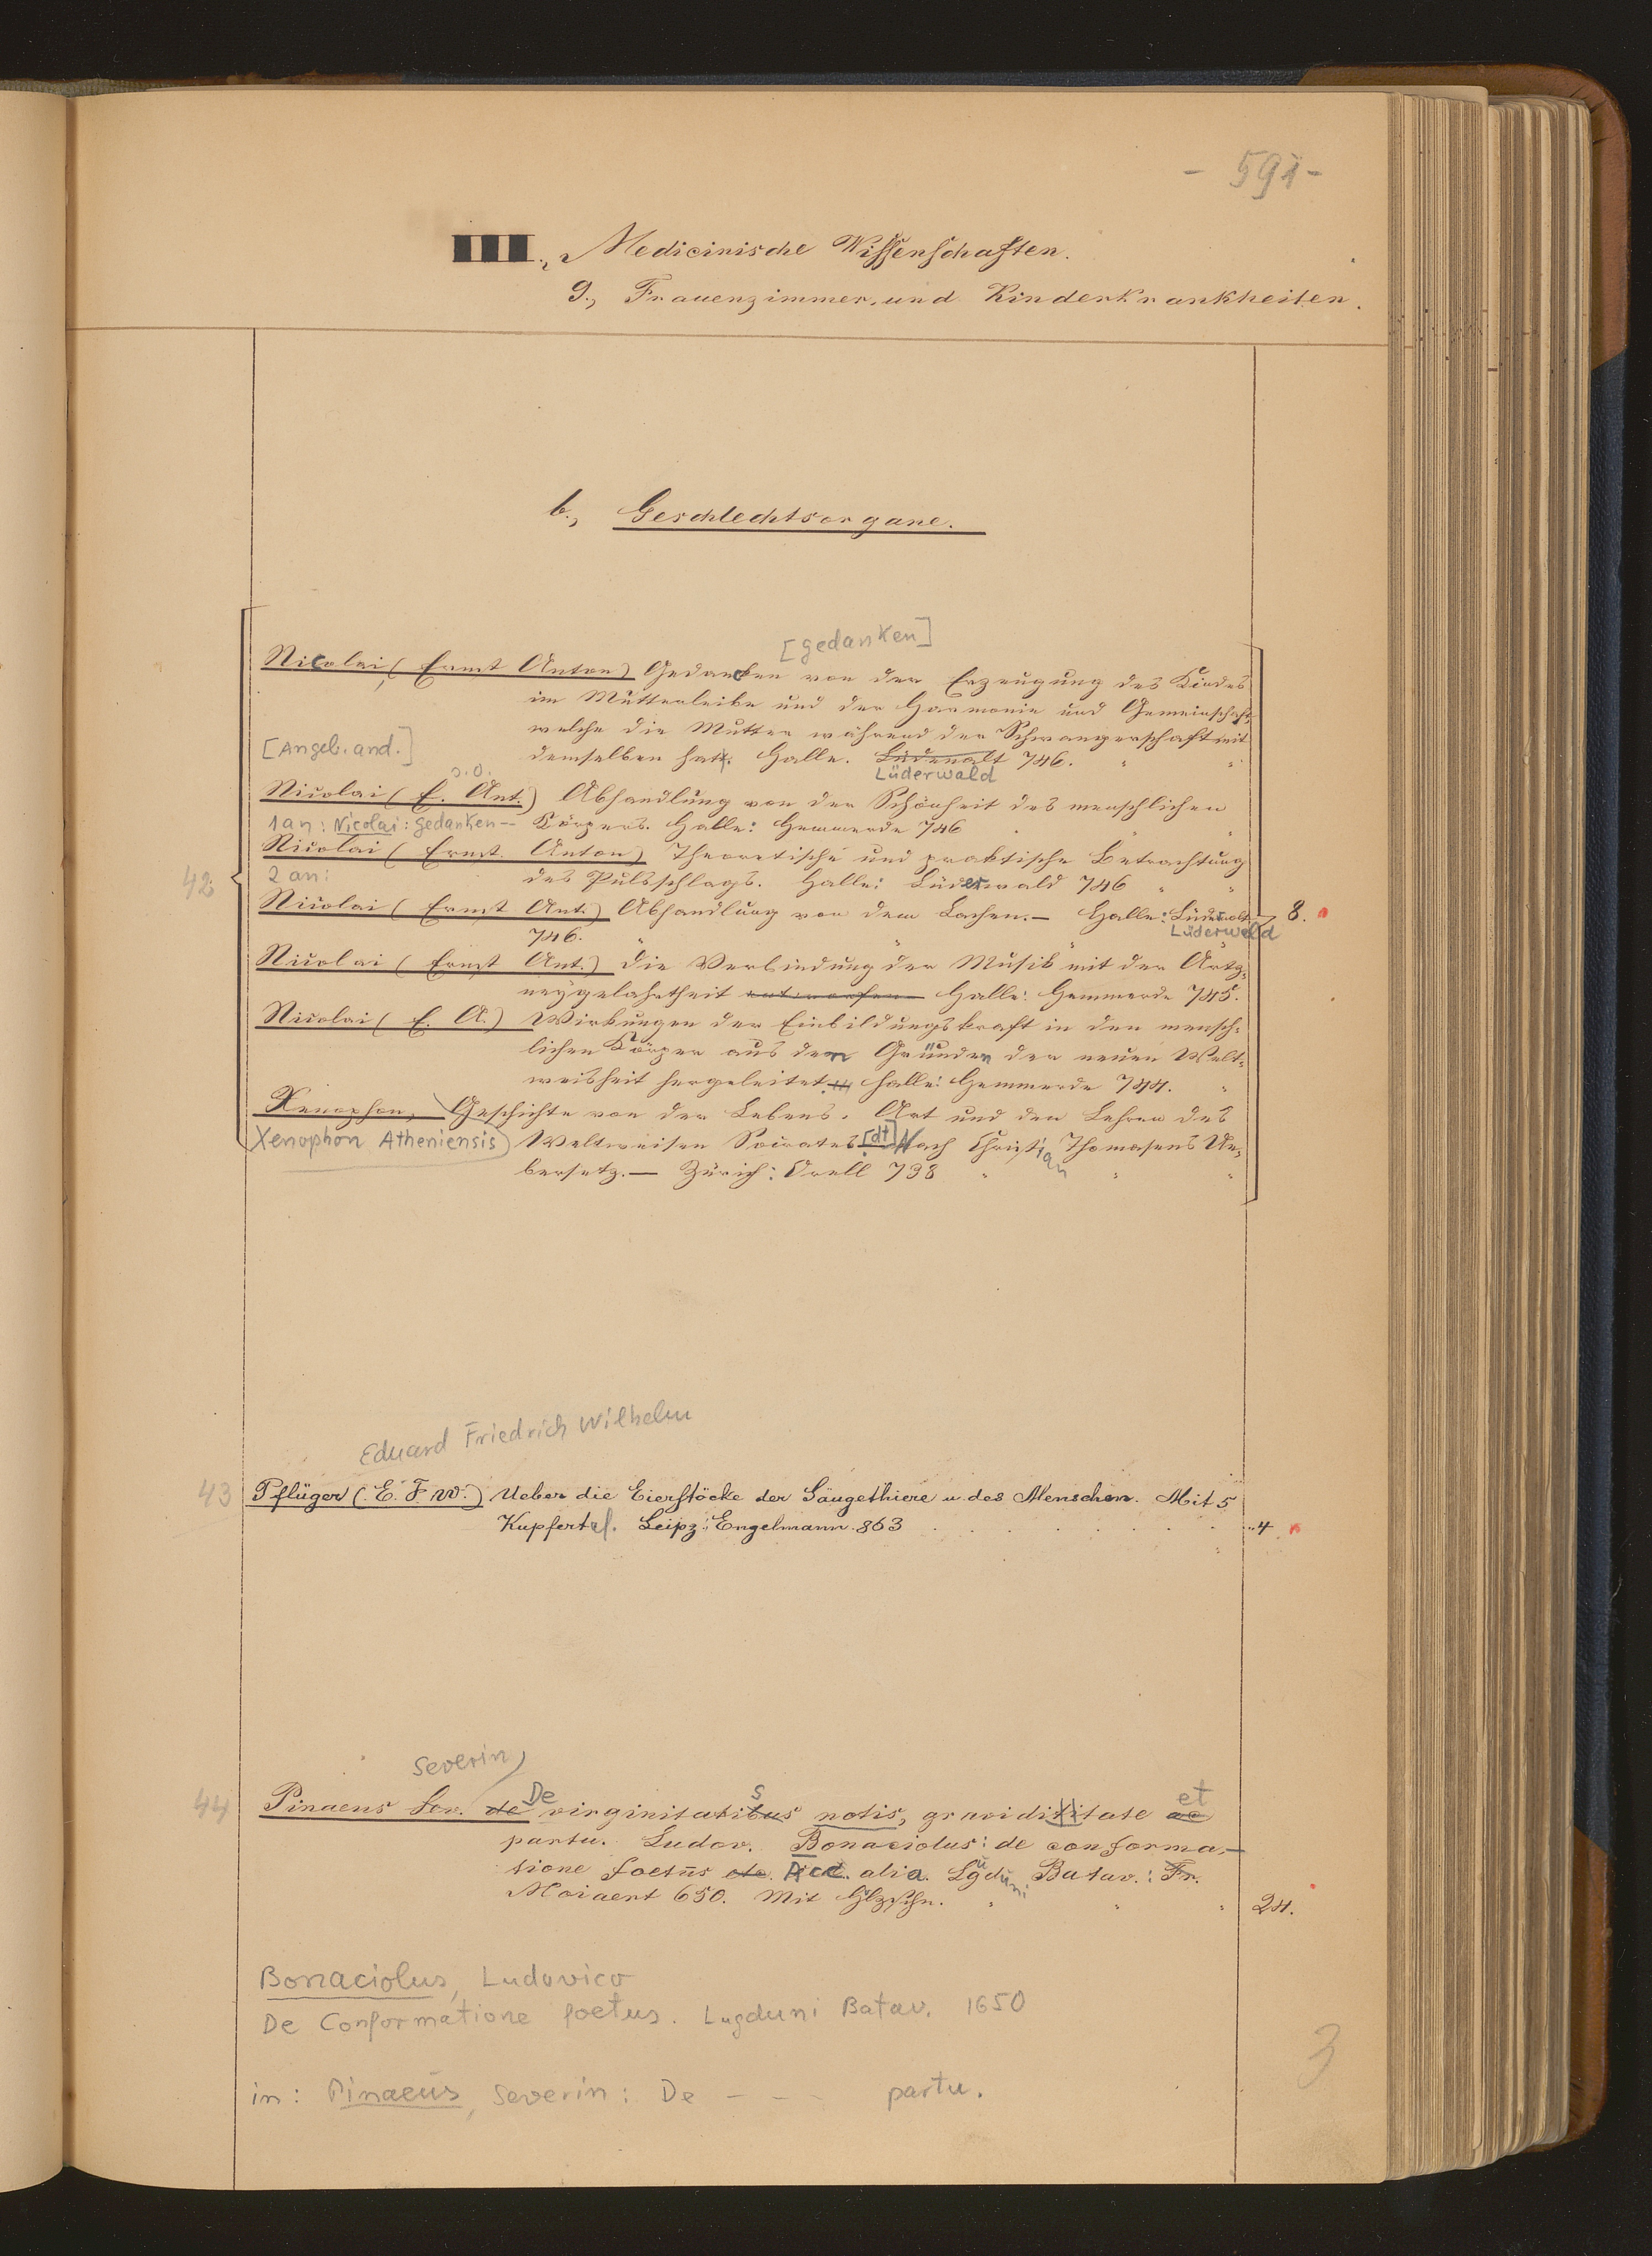 - 591 -
III., Medicinische Wissenschaften.
9., Frauenzimmer- und Kinderkrankheiten.
b., Geschlechtsorgane.
[gedanken]
Nicolai, (Ernst Anton) Gedancken von der Erzeugung des Kindes
im Mutterleibe und der Harmonie und Gemeinschaft,
welche die Mutter während der Schwangerschaft mit
[Angeb. and.]
demselben hat. Halle. Lüdenalt 746.
Lüderwald
s.o.
Nicolai (E. Ant.) Abhandlung von der Schönheit des menschlichen
1 an: Nicolai: gedanken -- Körpers. Halle: Hemmerde 746
Nicolai (Ernst Anton) Theoretische und praktische Betrachtung
42 2 an: des Pulsschlags. Halle: Lüderwald 746
Nicolai (Ernst Ant.) Abhandlung von dem Lachen. — Halle: Lüderwalt 8.
746. Lüderwald
Nicolai (Ernst Ant.) Die Verbindung der Musik mit der Artz-
neygelahrtheit entworfen Halle: Hemmerde 745.
Nicolai (E. A.) Wirkungen der Einbildungskraft in den mensch-
lichen Körper aus den Gründen der neuen Welt-
weisheit hergeleitet. Halle: Hemmerde 744.
Xenophon, Geschichte von der Lebens-Art und den Lehren des
Xenophon Atheniensis) Weltweisen Socrates [dt] Nach Christian Thomasens Ue-
bersetz. — Zürich: Orell 738
Eduard Friedrich Wilhelm
43 Pflüger (E. F. W.) Ueber die Eierstöcke der Säugethiere u. des Menschen. Mit 5
Kupfertaf. Leipz.: Engelmann. 863 4
Severin,
De s et
44 Pinaeus Sev. de virginitatibus notis, graviditate ac
partu. Ludov. Bonaciolus: de conforma-
tione foetus etc. Acc. alia. Lugduni Batav.: Fr.
Moiaert 650. Mit Hlzschn. 24.
Bonaciolus, Ludovico
De Conformatione foetus. Lugduni Batav. 1650
3
in: Pinaeus, Severin: De - - - partu.